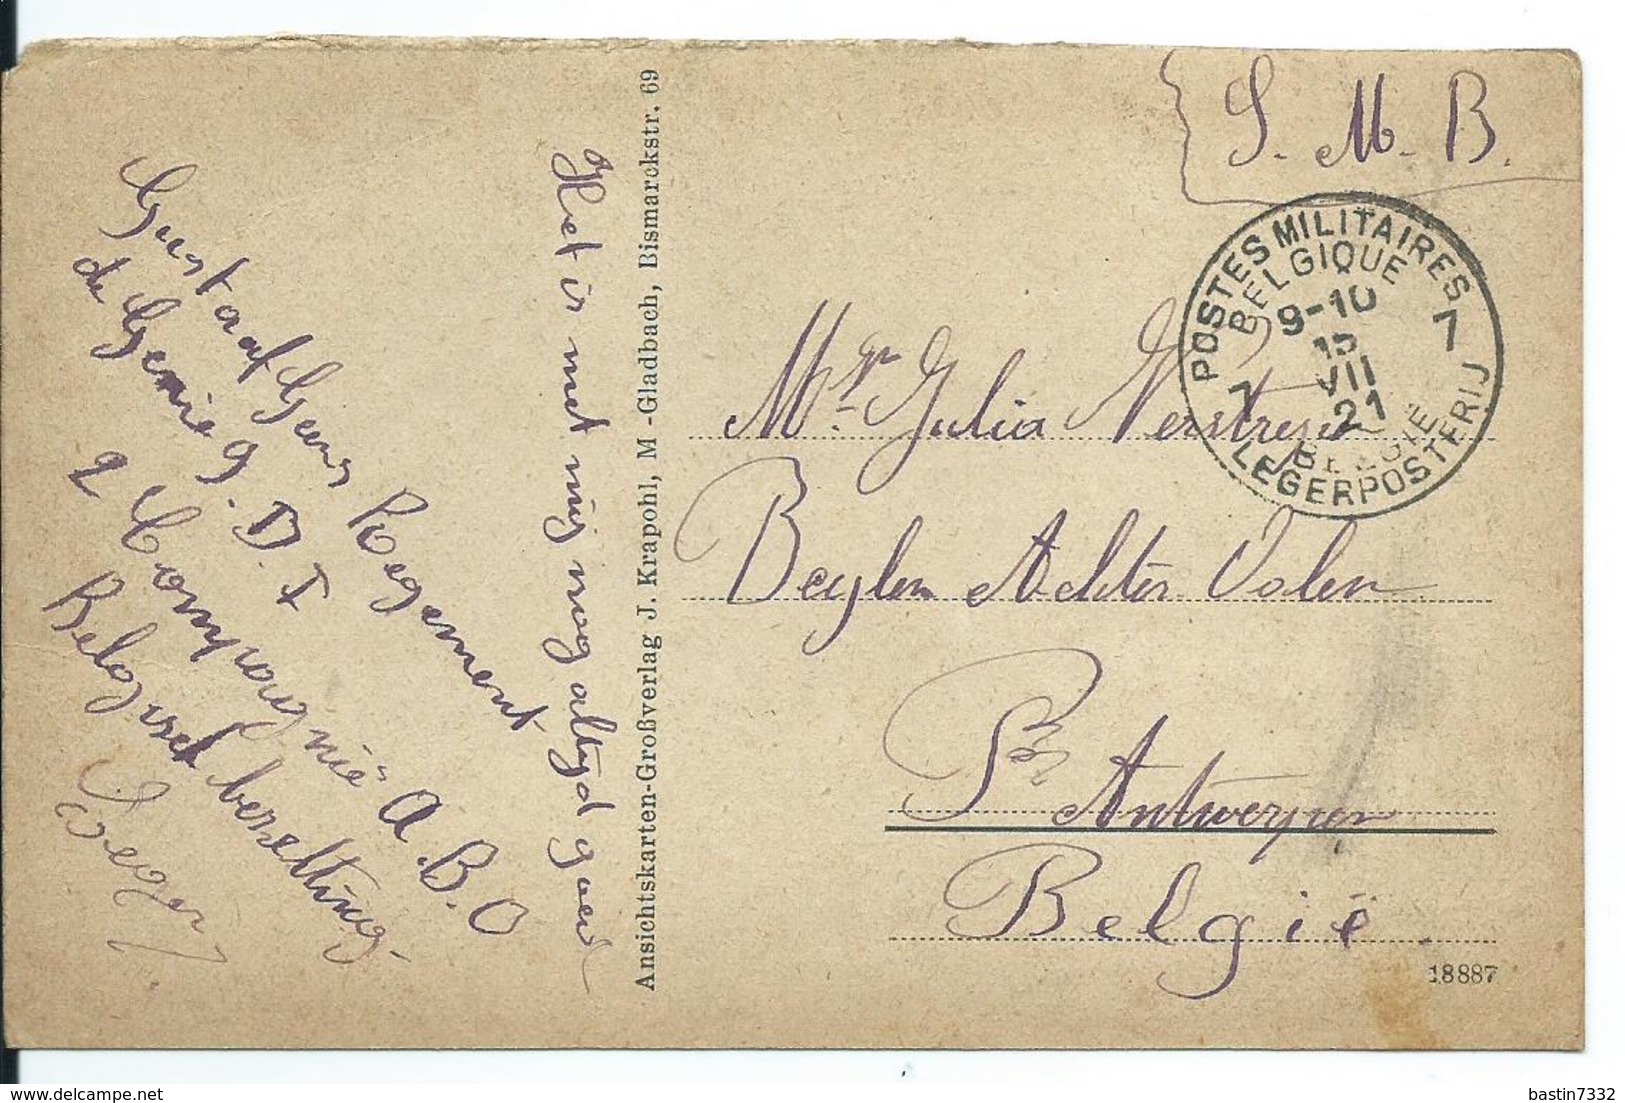 Gustaaf Geens Regement
de Genie 9. D. I
2 Compagnie A.B.O
Belgisch bezettung.
Het is met mij nog altyd goed
Ansichtskarten-Großverlag J. Krapohl, M -Gladbach, Bismarckstr. 69
S. M. B.
POSTES MILITAIRES
BELGIQUE
9-10
15
VII
21
7 7
BELGIË
LEGERPOSTERIJ
Mr Julia
Beylen Achter Oolen
Antwerpen
België.
18887
bastin7332